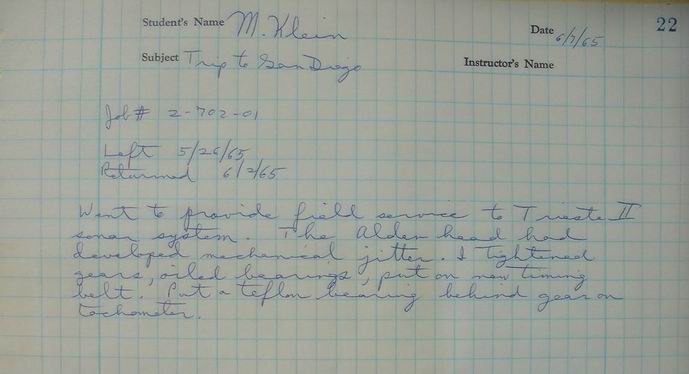 Student's Name M. Klein
Date 6/7/65
22
Subject Trip to San Diego
Instructor's Name
Job # 2-702-01
Left 5/26/65
Returned 6/2/65
Went to provide field service to Trieste II
sonar system. The Alden head had
developed mechanical jitter. I tightened
gears, oiled bearings, put on new timing
belt. Put a teflon bearing behind gear on
tachometer.